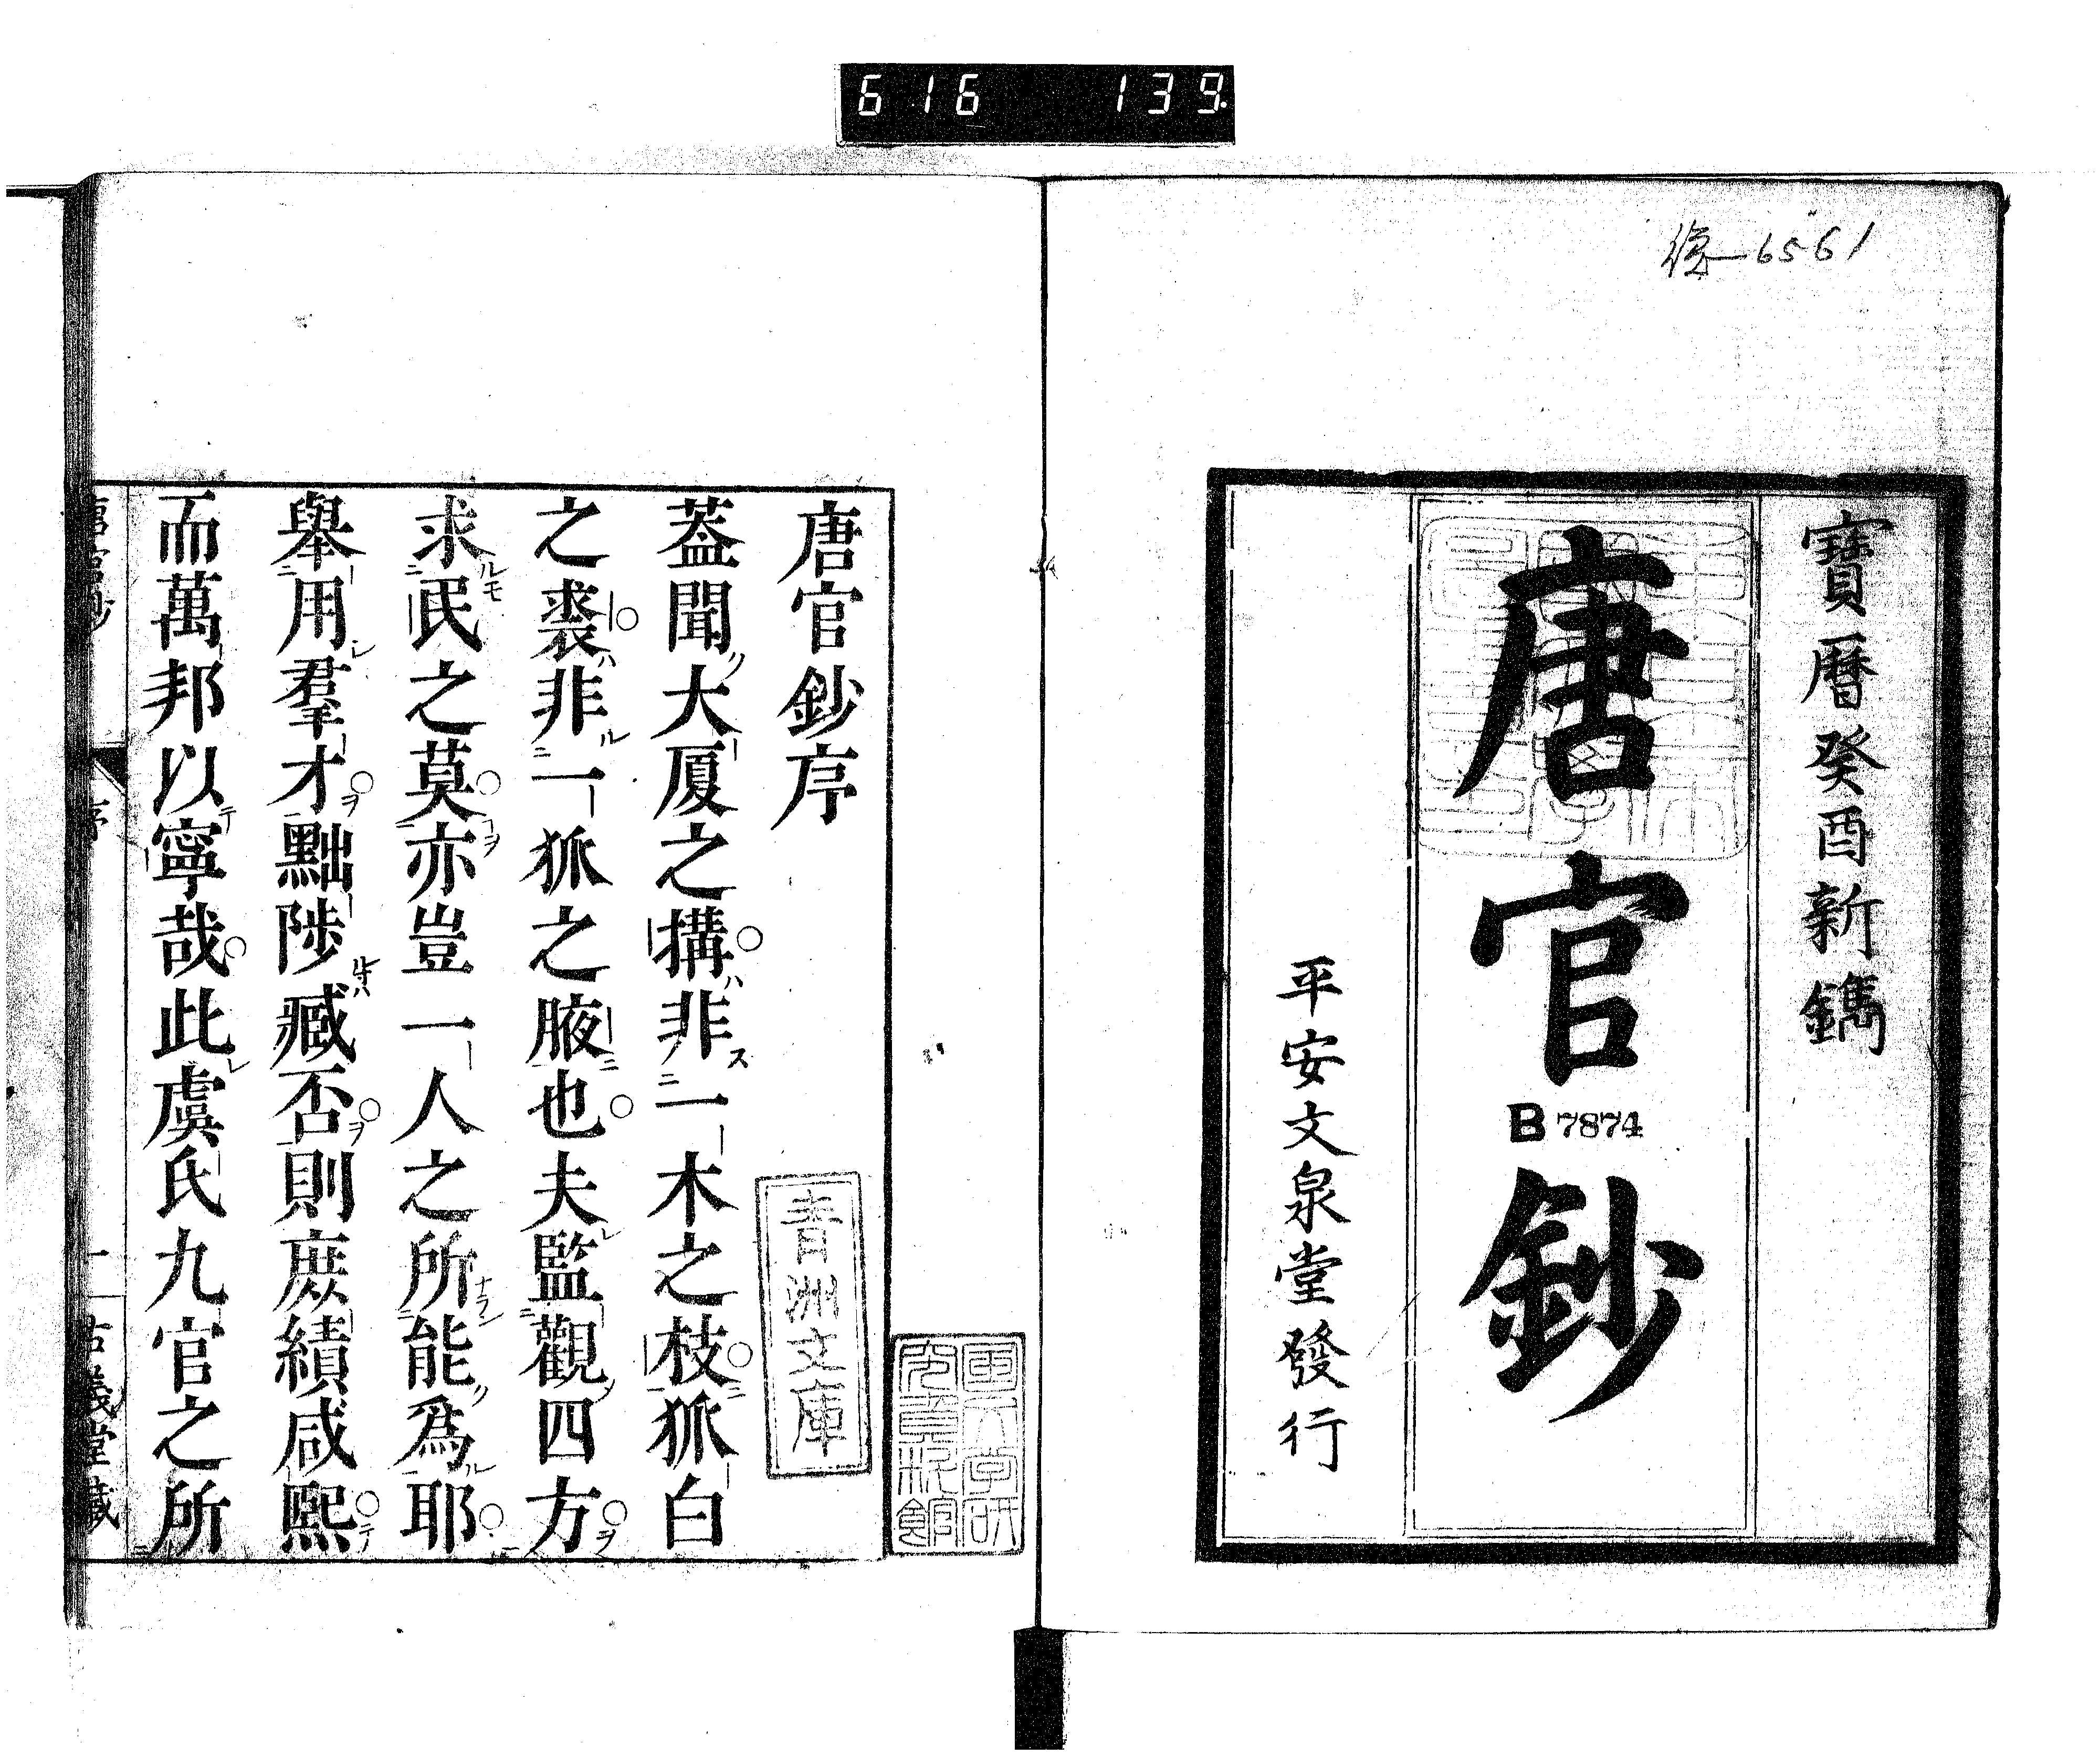 616 139
6561
寶暦癸酉新鐫
唐官鈔
B 7874
平安文泉堂發行
唐官鈔序
葢聞大厦之搆非一木之枝狐白
之裘非一狐之腋也夫監觀四方
求民之莫亦豈一人之所能爲耶
舉用羣才黜陟臧否則庶績咸熙
而萬邦以寧哉此虞氏九官之所
青洲文庫
唐官鈔
序
一
古義堂藏